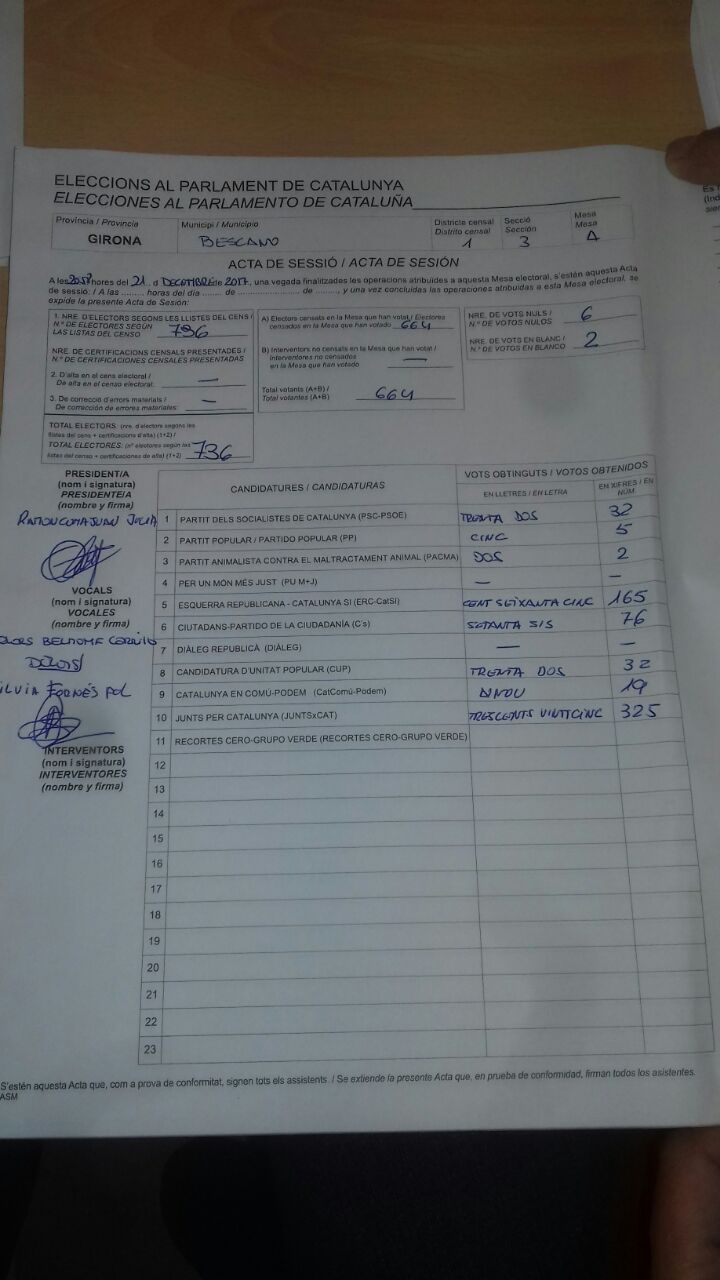 ELECCIONS AL PARLAMENT DE CATALUNYA
ELECCIONES AL PARLAMENTO DE CATALUÑA
Província / Provincia
GIRONA
Municipi / Municipio
BESCANO
Districte censal
Distrito censal
1
Secció
Sección
3
Mesa
Mesa
A
ACTA DE SESSIÓ / ACTA DE SESIÓN
A les 20:58 hores del 21 d DECEMBRE de 2017, una vegada finalitzades les operacions atribuïdes a aquesta Mesa electoral, s'estén aquesta Acta
de sessió. / A las ........ horas del día ........ de ........................ de ........, y una vez concluidas las operaciones atribuidas a esta Mesa electoral, se
expide la presente Acta de Sesión:
1. NRE. D'ELECTORS SEGONS LES LLISTES DEL CENS /
N.º DE ELECTORES SEGÚN
LAS LISTAS DEL CENSO
736
NRE. DE CERTIFICACIONS CENSALS PRESENTADES /
N.º DE CERTIFICACIONES CENSALES PRESENTADAS
2. D'alta en el cens electoral /
De alta en el censo electoral: —
3. De correcció d'errors materials /
De corrección de errores materiales: —
TOTAL ELECTORS: (nre. d'electors segons les
llistes del cens + certificacions d'alta) (1+2) /
TOTAL ELECTORES: (nº electores según las
listas del censo + certificaciones de alta) (1+2)
736
A) Electors censats en la Mesa que han votat / Electores
censados en la Mesa que han votado 664
B) Interventors no censats en la Mesa que han votat /
Interventores no censados
en la Mesa que han votado —
Total votants (A+B) /
Total votantes (A+B) 664
NRE. DE VOTS NULS /
N.º DE VOTOS NULOS 6
NRE. DE VOTS EN BLANC /
N.º DE VOTOS EN BLANCO 2
PRESIDENT/A
(nom i signatura)
PRESIDENTE/A
(nombre y firma)
VOCALS
(nom i signatura)
VOCALES
(nombre y firma)
DOLORS
SILVIA FORNÉS POL
INTERVENTORS
(nom i signatura)
INTERVENTORES
(nombre y firma)
CANDIDATURES / CANDIDATURAS
VOTS OBTINGUTS / VOTOS OBTENIDOS
EN LLETRES / EN LETRA
EN XIFRES / EN NÚM.
1 PARTIT DELS SOCIALISTES DE CATALUNYA (PSC-PSOE) TRENTA DOS 32
2 PARTIT POPULAR / PARTIDO POPULAR (PP) CINC 5
3 PARTIT ANIMALISTA CONTRA EL MALTRACTAMENT ANIMAL (PACMA) DOS 2
4 PER UN MÓN MÉS JUST (PU M+J) — —
5 ESQUERRA REPUBLICANA - CATALUNYA SÍ (ERC-CatSÍ) CENT SEIXANTA CINC 165
6 CIUTADANS-PARTIDO DE LA CIUDADANÍA (C's) SETANTA SIS 76
7 DIÀLEG REPUBLICÀ (DIÀLEG) — —
8 CANDIDATURA D'UNITAT POPULAR (CUP) TRENTA DOS 32
9 CATALUNYA EN COMÚ-PODEM (CatComú-Podem) DINOU 19
10 JUNTS PER CATALUNYA (JUNTSxCAT) TRESCENTS VINTICINC 325
11 RECORTES CERO-GRUPO VERDE (RECORTES CERO-GRUPO VERDE)
12
13
14
15
16
17
18
19
20
21
22
23
S'estén aquesta Acta que, com a prova de conformitat, signen tots els assistents. / Se extiende la presente Acta que, en prueba de conformidad, firman todos los asistentes.
ASM